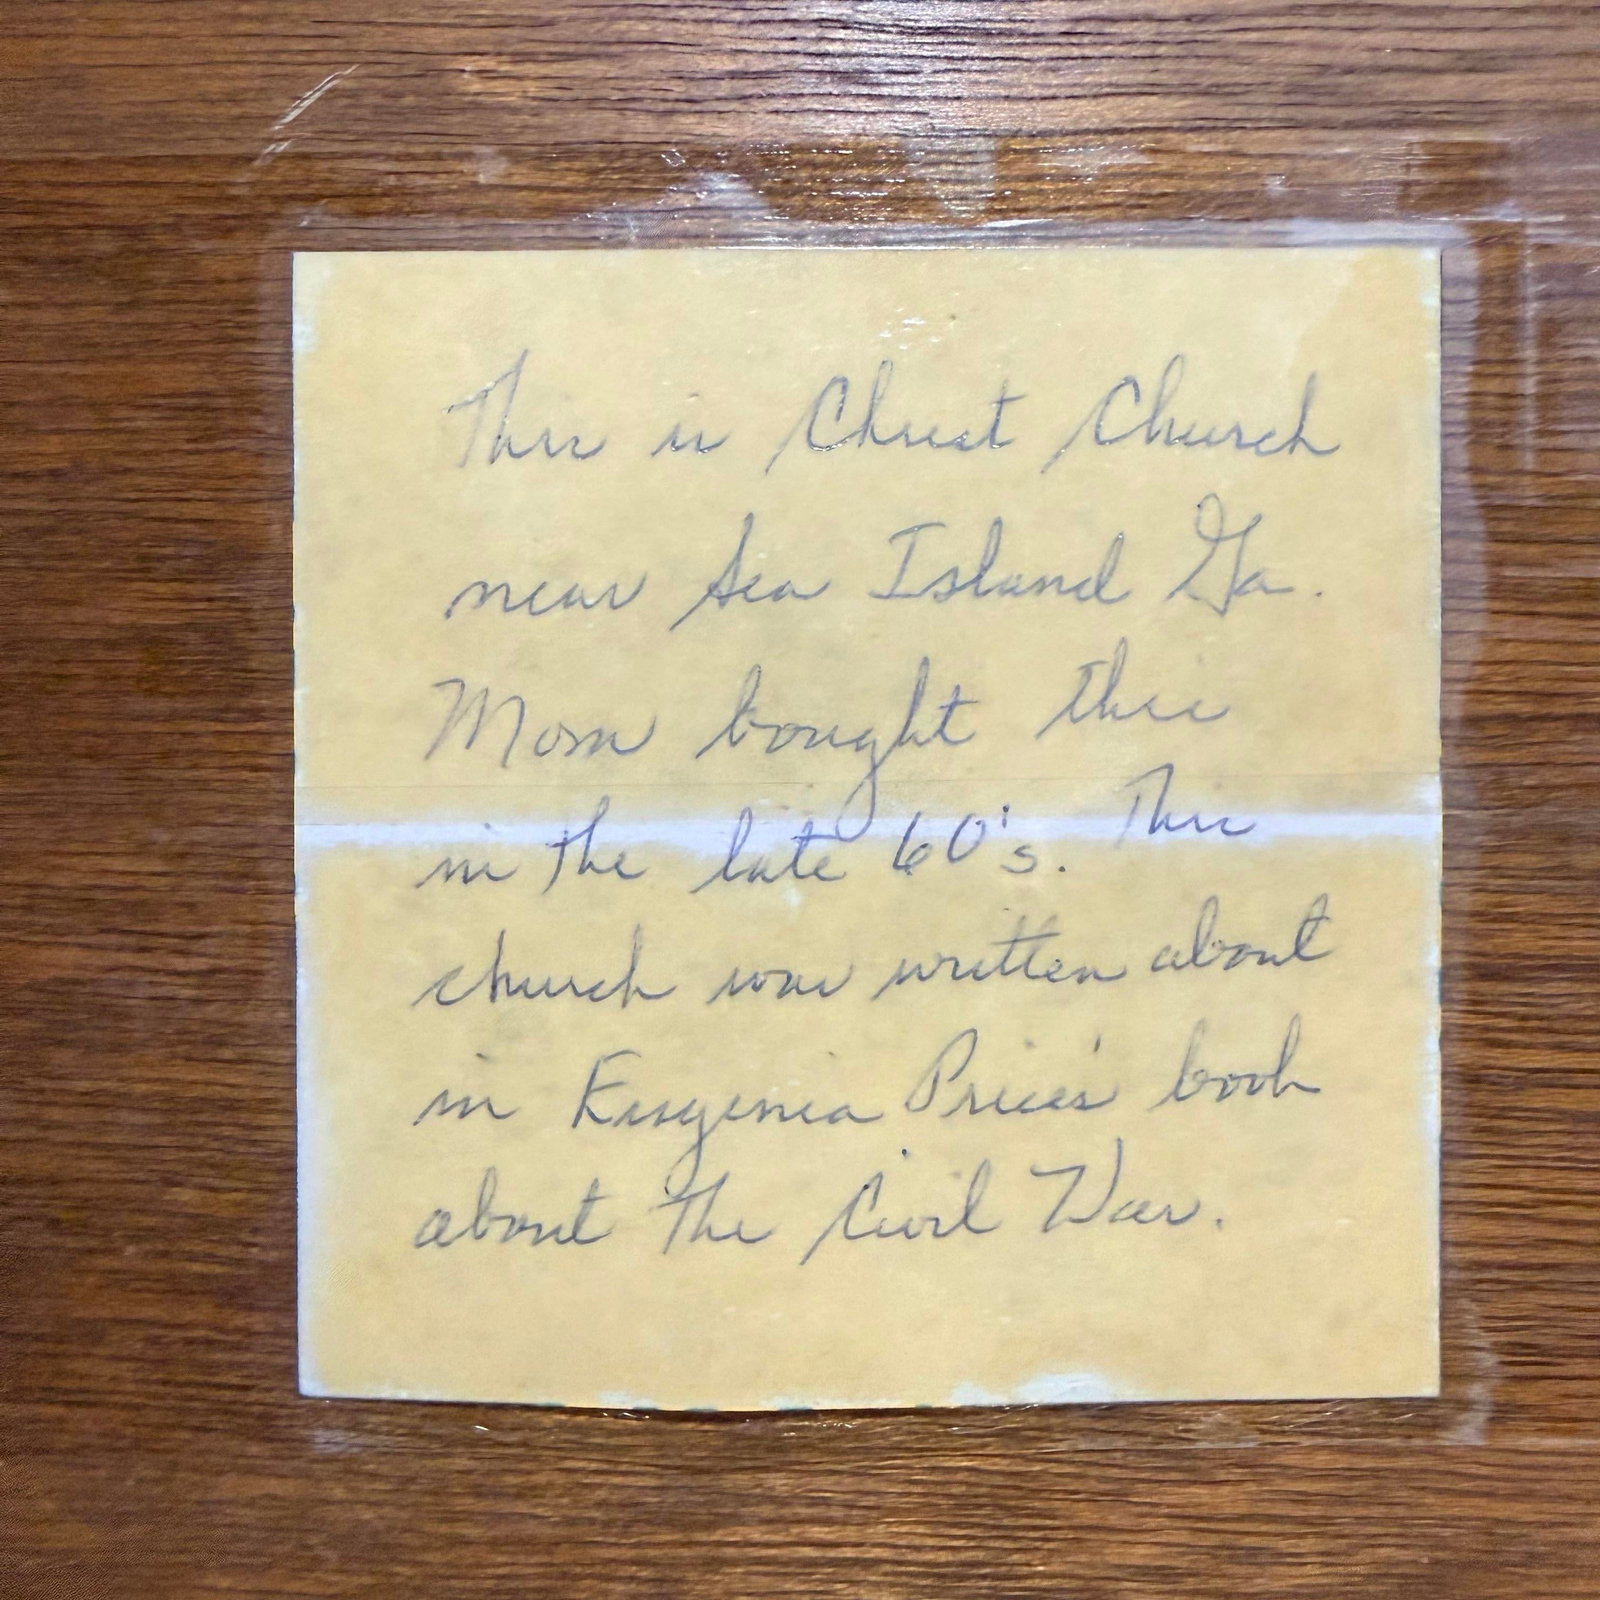 This is Christ Church
near Sea Island Ga.
Mom bought this
in the late 60's. This
church was written about
in Eugenia Price's book
about the Civil War.